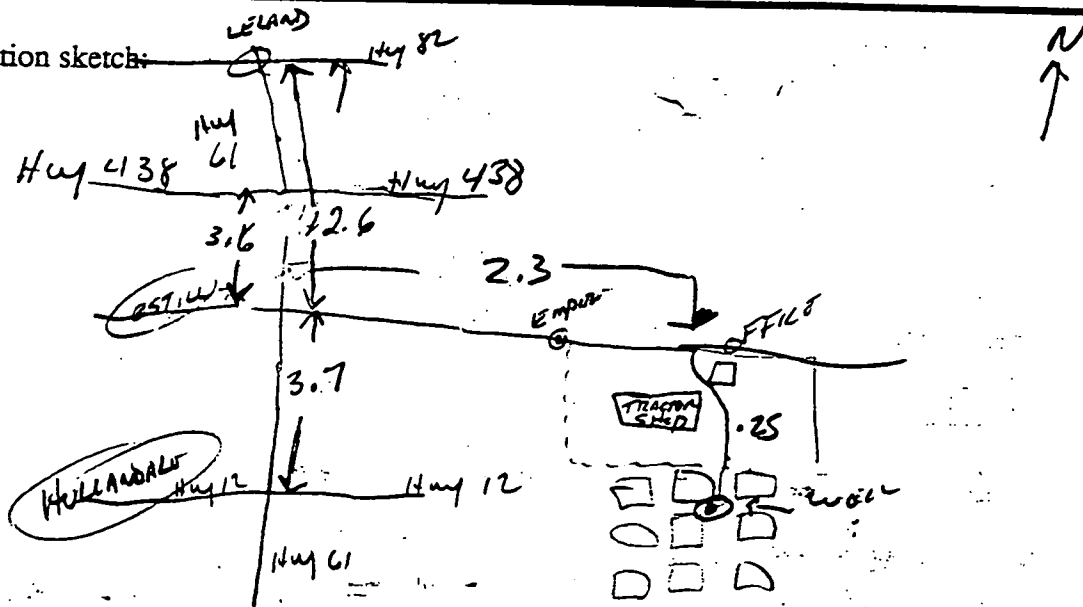 LELAND
N
tion sketch:
Hwy 82
Hwy
61
Hwy 438
Hwy 438
3.6
12.6
2.3
ESTILL
Empire
3.7
TRACTOR
SHED
.25
HOLLANDALE
Hwy 12
Hwy 12
WELL
Hwy 61